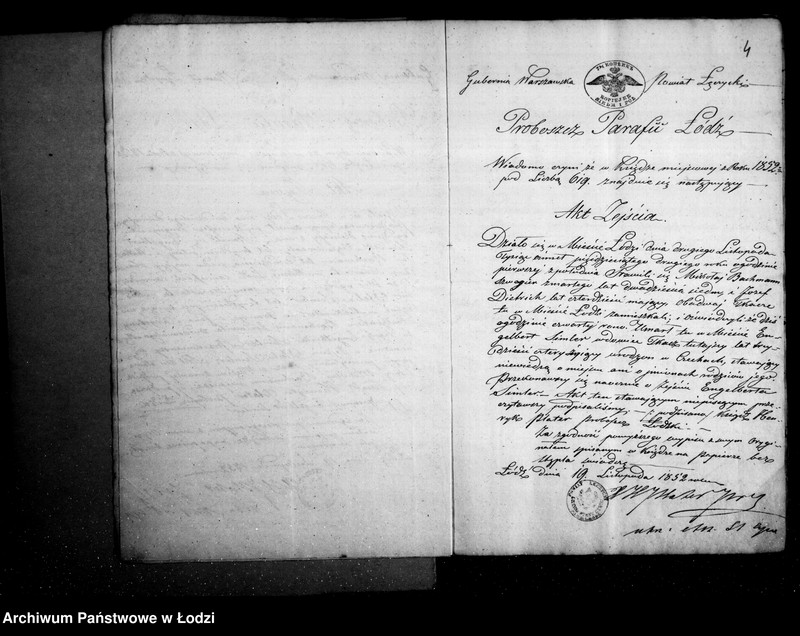 4
Gubernia Warszawska Powiat Łęczycki
Proboszcz Parafii Łódź
Wiadomo czyni że w Księdze miejscowej z Roku 1852
pod Liczbą 619 znajduje się następujący
Akt Zejścia.
Działo się w Mieście Łodzi dnia drugiego Listopada
Tysiąc ośmset pięćdziesiątego drugiego roku o godzinie
pierwszej z południa Stawili się Mikołaj Bachmann
szwagier zmarłego lat dwadzieścia siedm i Józef
Dietrich lat czterdzieści mający obadwaj Tkacze
tu w Mieście Łodzi zamieszkali; i oświadczyli że dziś
o godzinie czwartej rano Umarł tu w Mieście En-
gelbert Simler wdowiec Tkacz tutejszy lat trzy-
dzieści cztery mający urodzon w Czechach, stawający
niewiedzą o miejscu ani o imionach rodziców jego.
Przekonawszy się naocznie o zejściu Engelberta
Simler. Akt ten stawającym niepiśmiennym prze-
czytawszy podpisaliśmy. (podpisano) Ksiądz Hen-
ryk Plater Proboszcz Łodzki.
Za zgodność powyższego wypisu z swym Orygi-
nałem spisanym w Księdze na papierze bez
stępla świadczę
Łódź dnia 19 Listopada 1852 roku
X H Plater
Archiwum Państwowe w Łodzi